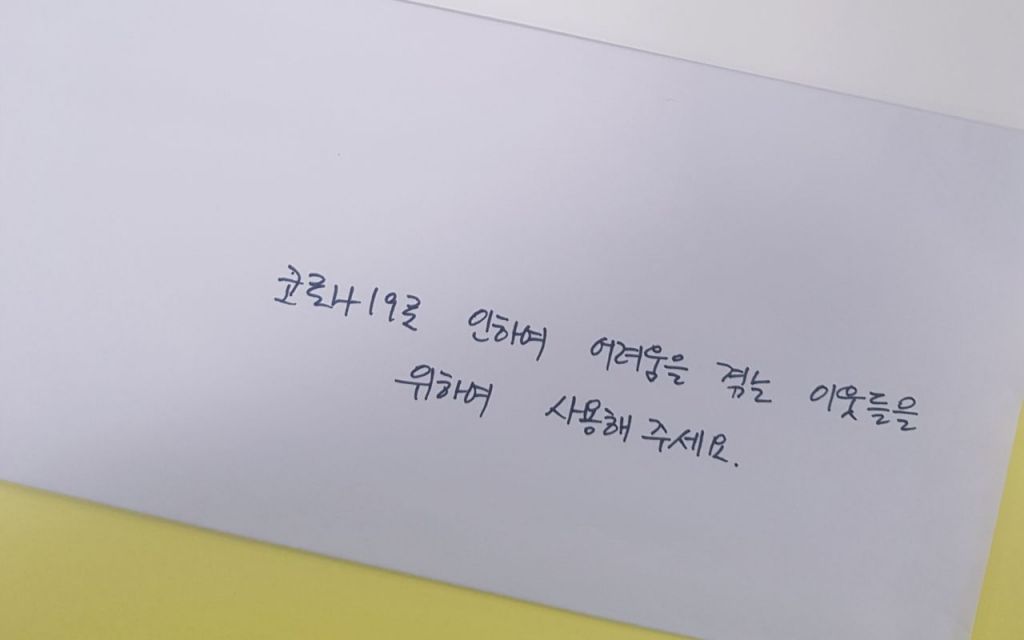 코로나19로 인하여 어려움을 겪는 이웃들을
위하여 사용해 주세요.